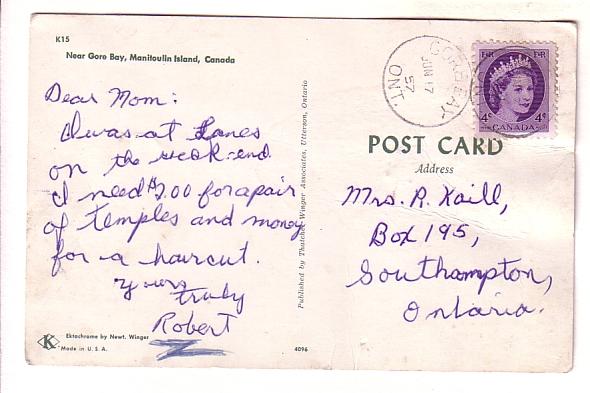 K15
Near Gore Bay, Manitoulin Island, Canada
Dear Mom:
I was at Lanes
on the week-end.
I need $2.00 for a pair
of temples and money
for a haircut.
Yours
truly
Robert
K
Ektachrome by Newt. Winger
Made in U. S. A.
4096
Published by Thatcher-Winger Associates, Utterson, Ontario
GORE BAY
JUN 17
57
ONT.
EIIR EIIR
4¢ 4¢
CANADA
POST CARD
Address
Mrs. R. Kaill,
Box 195,
Southampton,
Ontario.